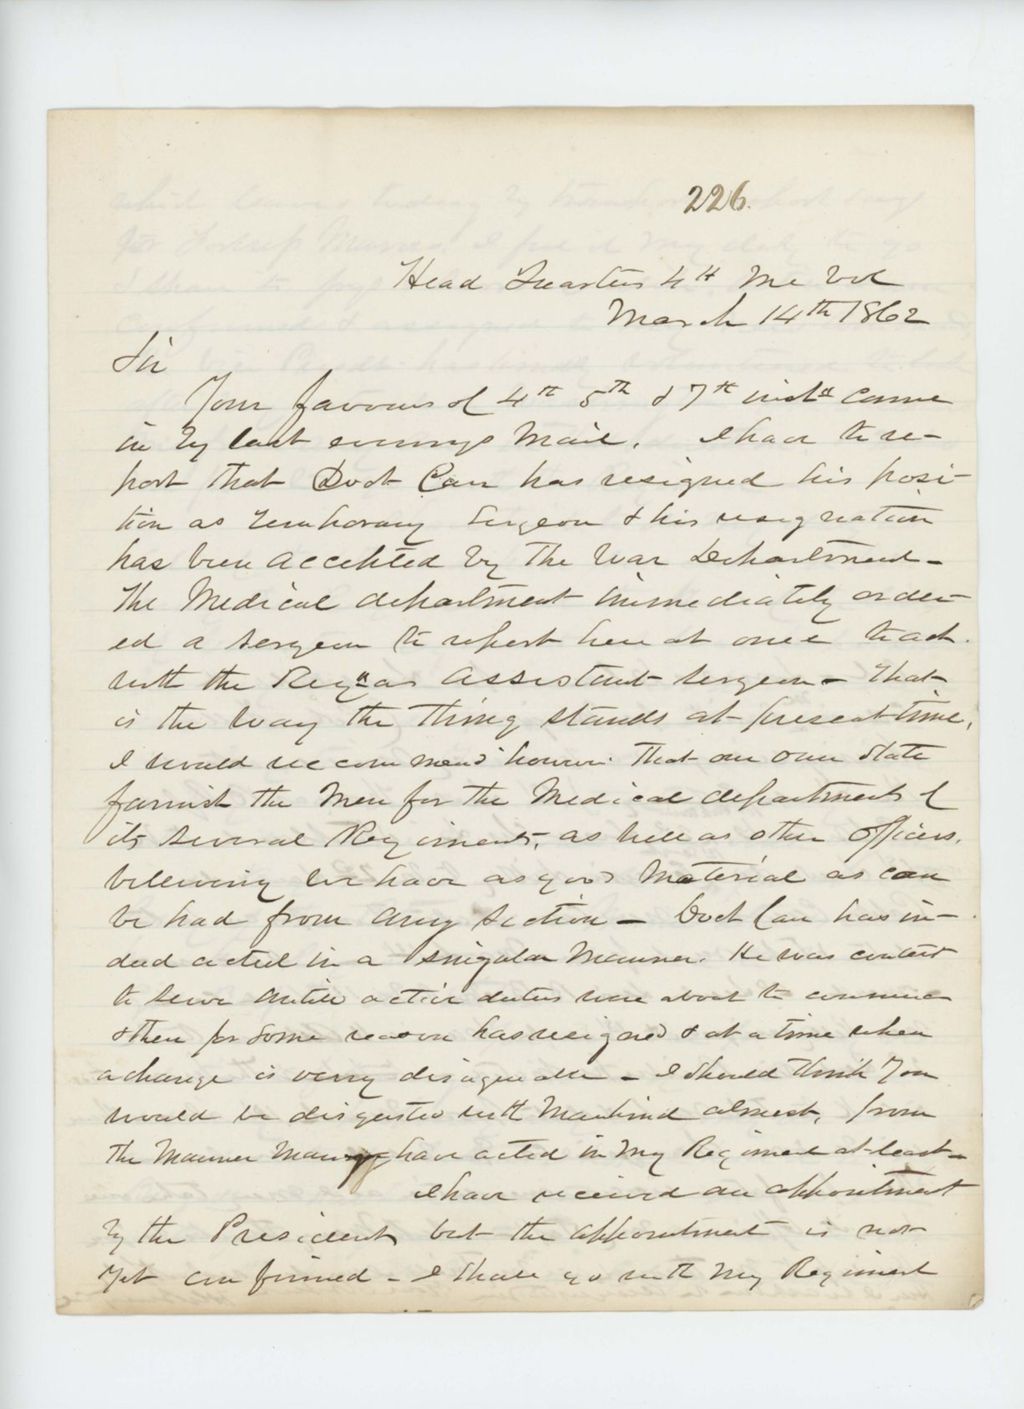 226.
Head Quarters 4th Me Vol
March 14th 1862
Sir
Your favours of 4th 5th & 7th inst came
in by last evenings Mail. I have to re-
port that Doct Carr has resigned his posi-
tion as temporary Surgeon & his resignation
has been accepted by the War Department -
the Medical department immediately order-
ed a surgeon to report here at once to act
with the Regt as assistant surgeon - That
is the way the thing stands at present time,
I would recommend however that our own State
furnish the Men for the Medical department of
its several Regiments, as well as other officers,
believing we have as good material as can
be had from any section - Doct Carr has in-
deed acted in a singular Manner. He was content
to serve until active duties were about to commence
& then for some reason has resigned & at a time when
a change is verry disagreable - I should think You
would be disgusted with Mankind almost, from
the Manner Many have acted in My Regiment at least -
I have received an appointment
by the President, but the appointment is not
yet confirmed - I shall go with My Regiment